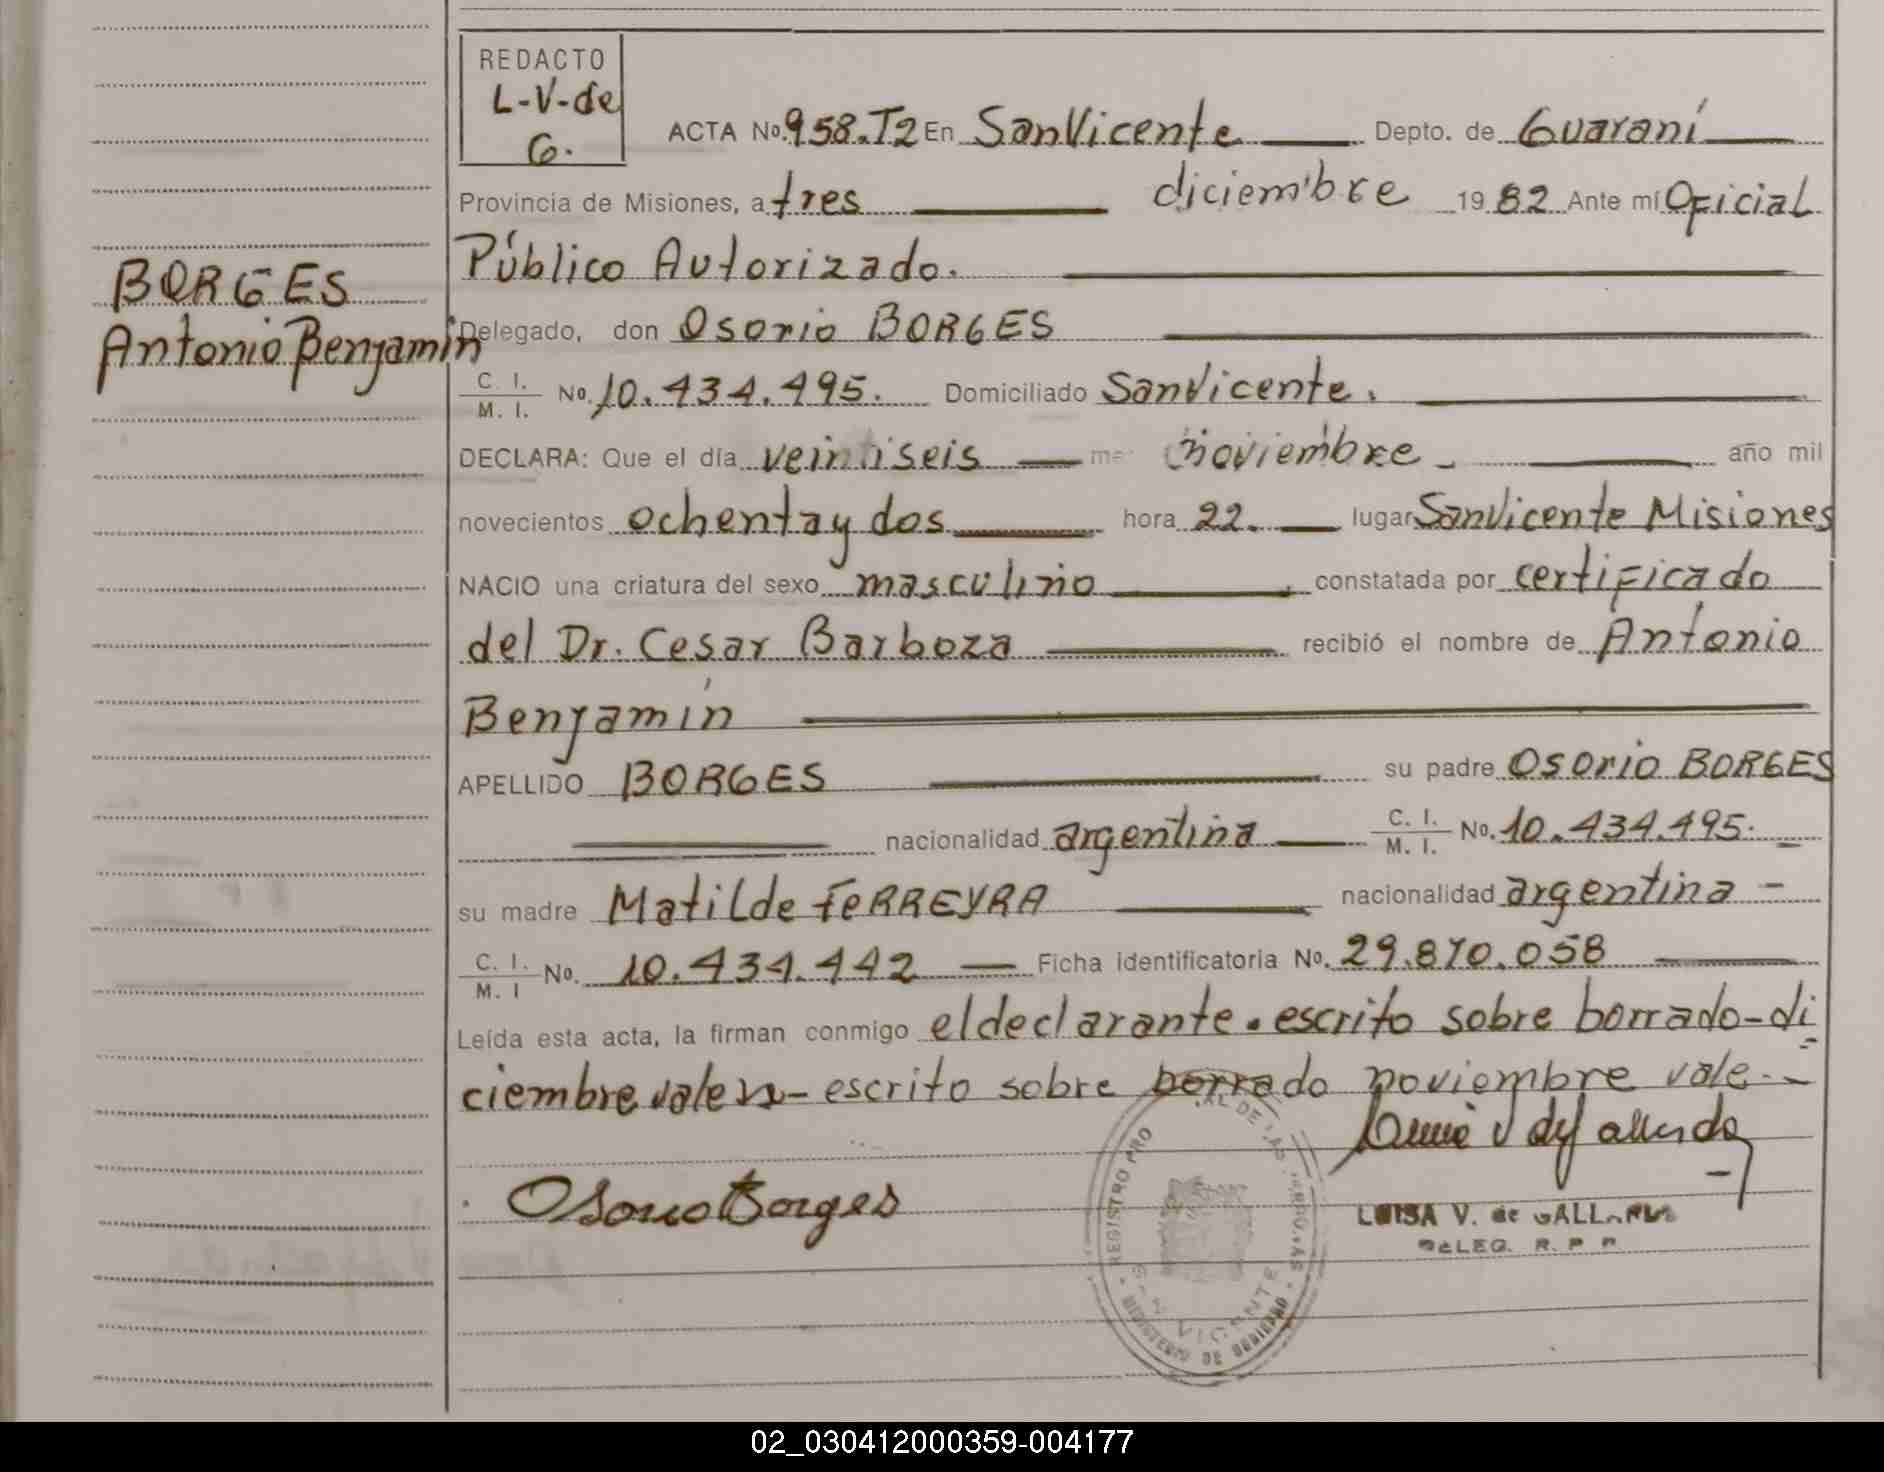 REDACTO
L-V-de
G.
ACTA No. 958.T2 En SanVicente Depto. de Guaraní
Provincia de Misiones, a tres diciembre 1982 Ante mí Oficial
Público Autorizado.
BORGES
Antonio Benjamín
Delegado, don Osorio BORGES
C. I.
M. I. No. 10.434.495. Domiciliado SanVicente.
DECLARA: Que el día veintiseis mes noviembre año mil
novecientos ochenta y dos hora 22. lugar SanVicente Misiones
NACIO una criatura del sexo masculino, constatada por certificado
del Dr. Cesar Barboza recibió el nombre de Antonio
Benjamín
APELLIDO BORGES su padre Osorio BORGES
nacionalidad argentina C. I. M. I. No. 10.434.495.
su madre Matilde FeRREYRA nacionalidad argentina -
C. I.
M. I No. 10.434.442 Ficha identificatoria No. 29.810.058
Leída esta acta, la firman conmigo el declarante. escrito sobre borrado-di
ciembre vale escrito sobre borrado noviembre vale.-
Osorio Borges
LUISA V. de GALLARDO
DELEG. R. P. P.
REGISTRO PRO AL DE LAS
SAN VICENTE
MINISTERIO DE GOBIERNO
02_030412000359-004177